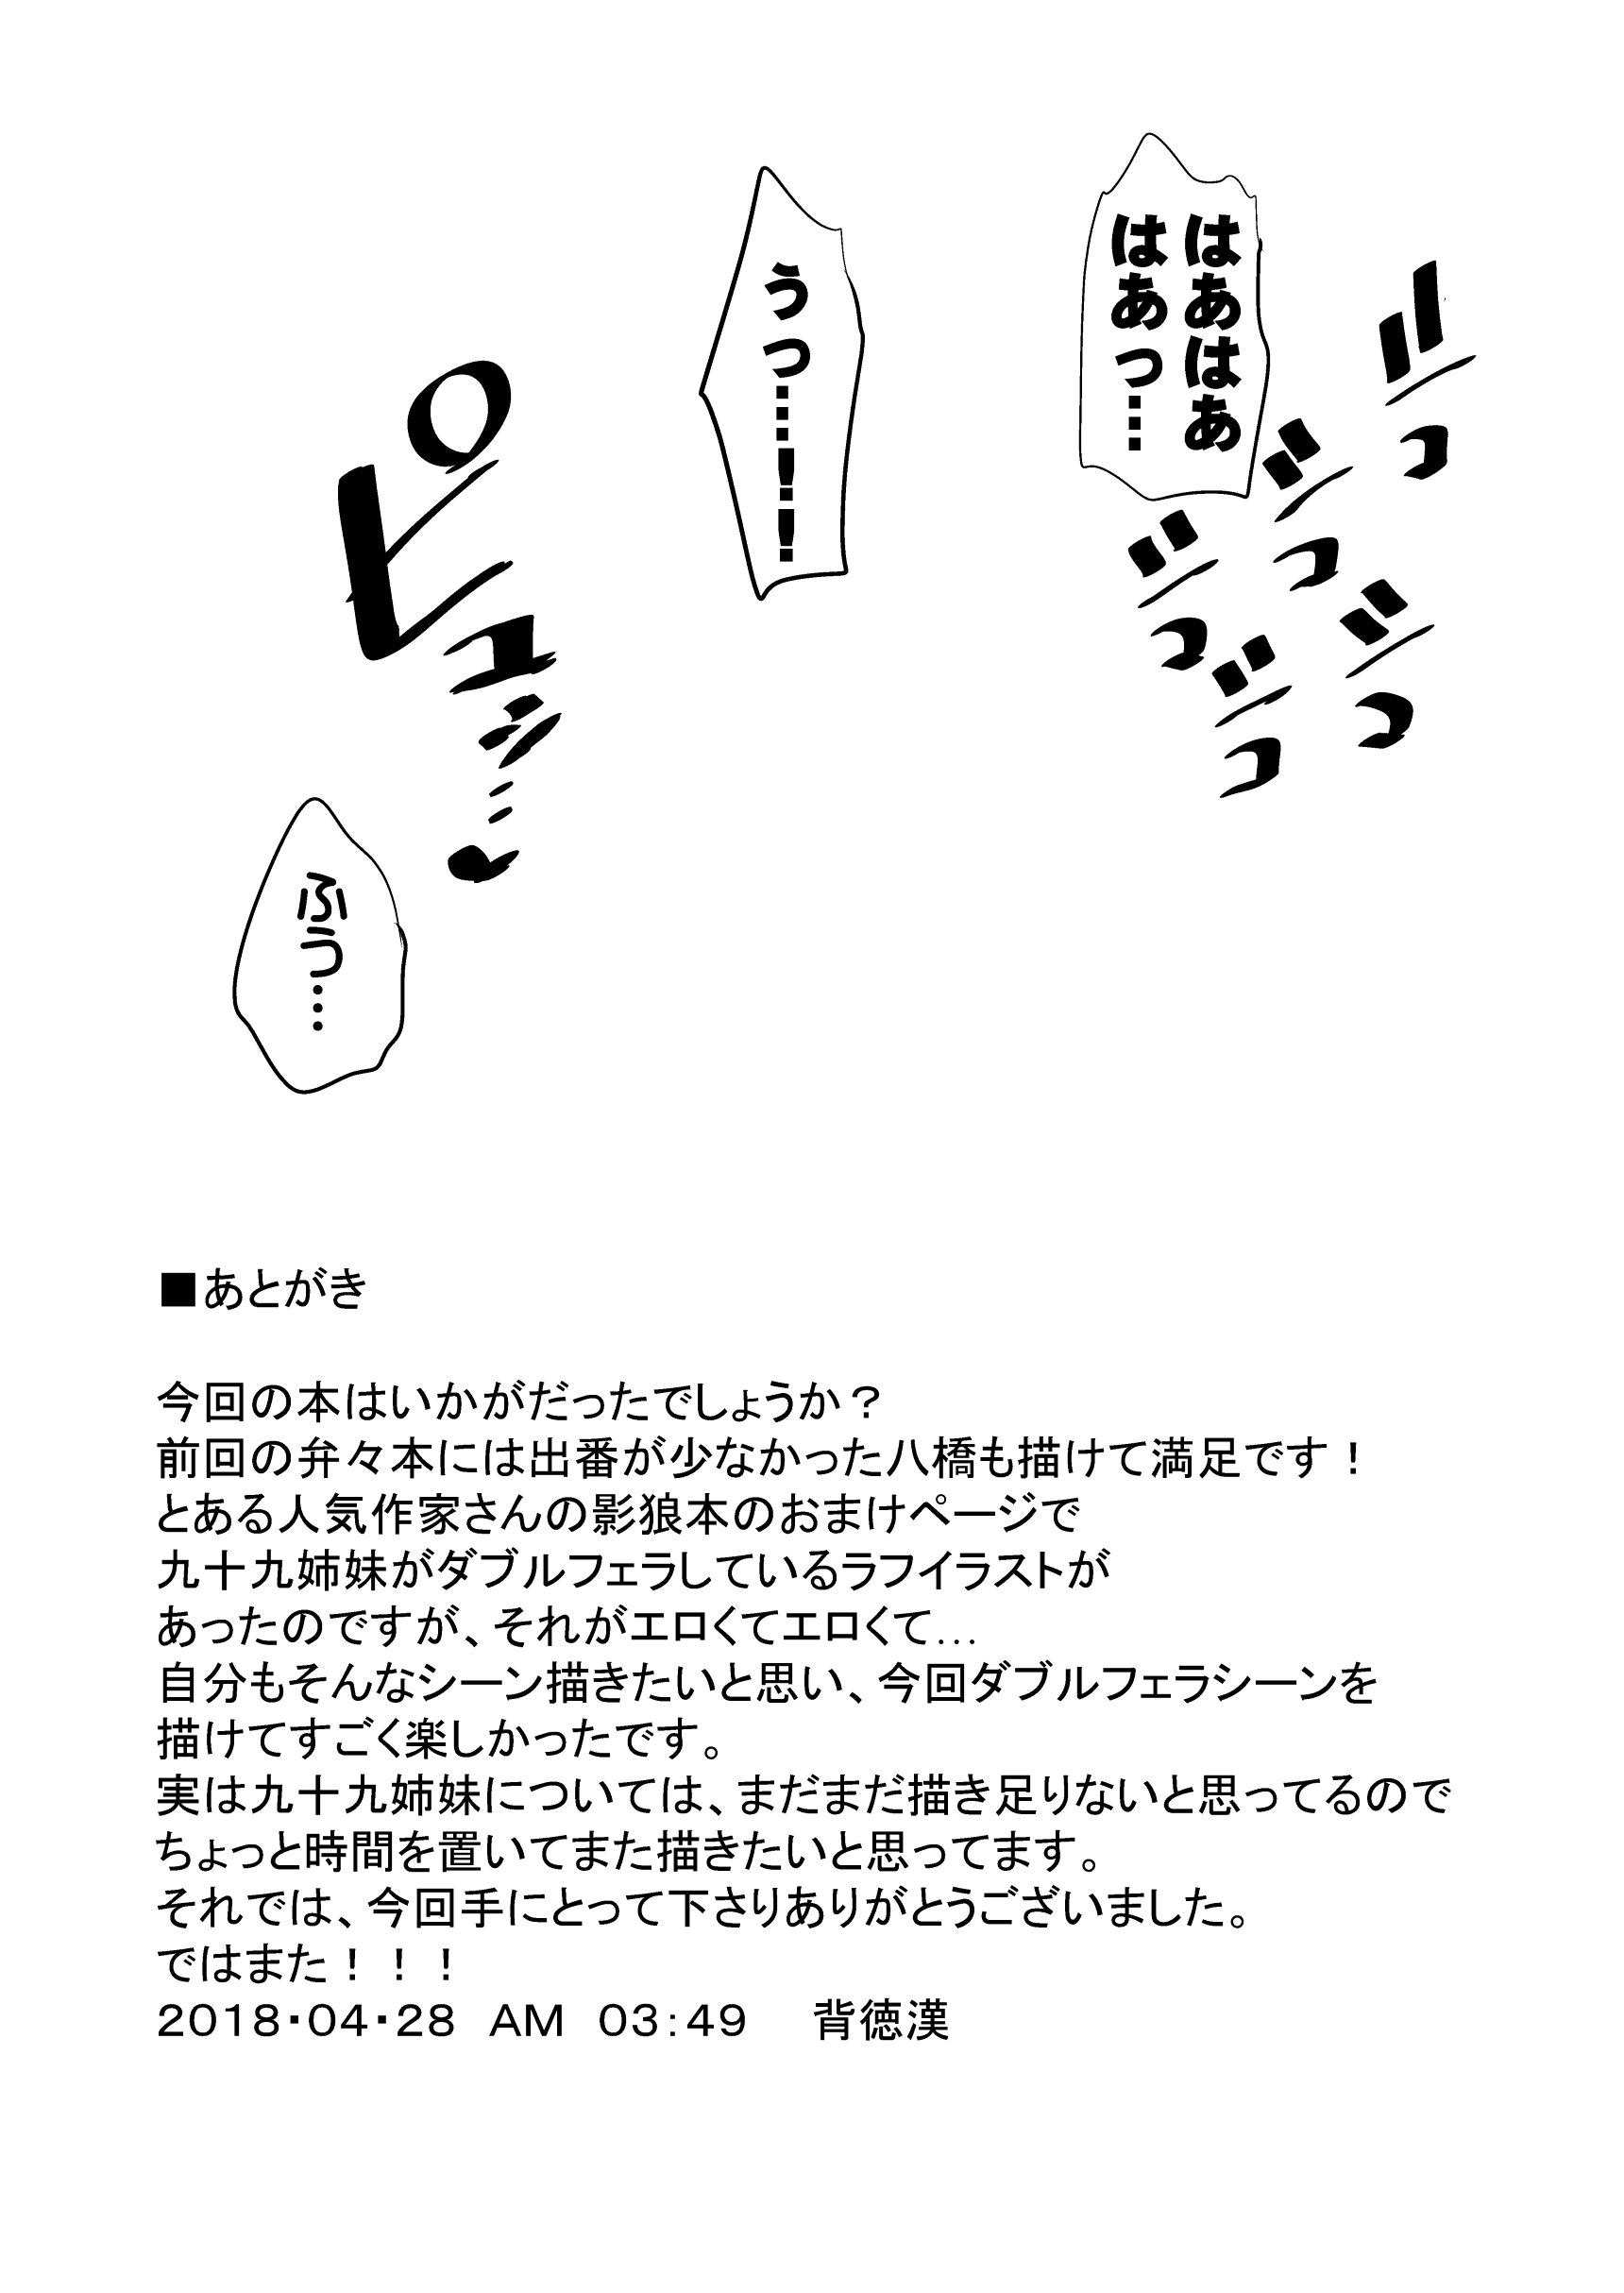 シっ
シっ
シっ
シっ
シっ
はあはあ
はあっ…
うっ…!!
ピュッ…
ふぅ…
■あとがき
今回の本はいかがだったでしょうか？
前回の弁々本には出番が少なかった八橋も描けて満足です！
とある人気作家さんの影狼本のおまけページで
九十九姉妹がダブルフェラしているラフイラストが
あったのですが、それがエロくてエロくて…
自分もそんなシーン描きたいと思い、今回ダブルフェラシーンを
描けてすごく楽しかったです。
実は九十九姉妹については、まだまだ描き足りないと思ってるので
ちょっと時間を置いてまた描きたいと思ってます。
それでは、今回手にとって下さりありがとうございました。
ではまた！！！
2018・04・28　AM　03：49　　背徳漢